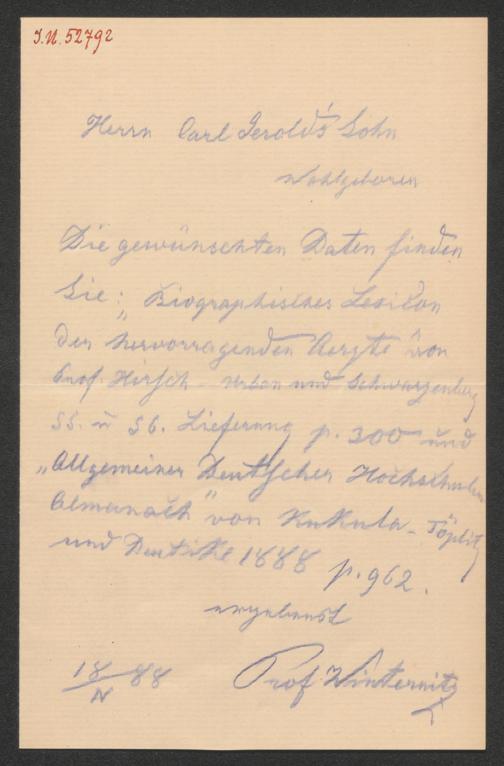 I.N. 52792
Herrn Carl Gerold's Sohn
Wohlgeboren
Die gewünschten Daten finden
Sie: „Biographisches Lexikon
der hervorragenden Aerzte" von
Prof. Hirsch - Urban und Schwarzenberg
55. u 56. Lieferung p. 300 und
„Allgemeiner Deutscher Hochschulen
Almanach" von Kukula - Töplitz
und Deutike 1888 p. 962.
ergebenst
Prof. Winternitz
18/IV 88